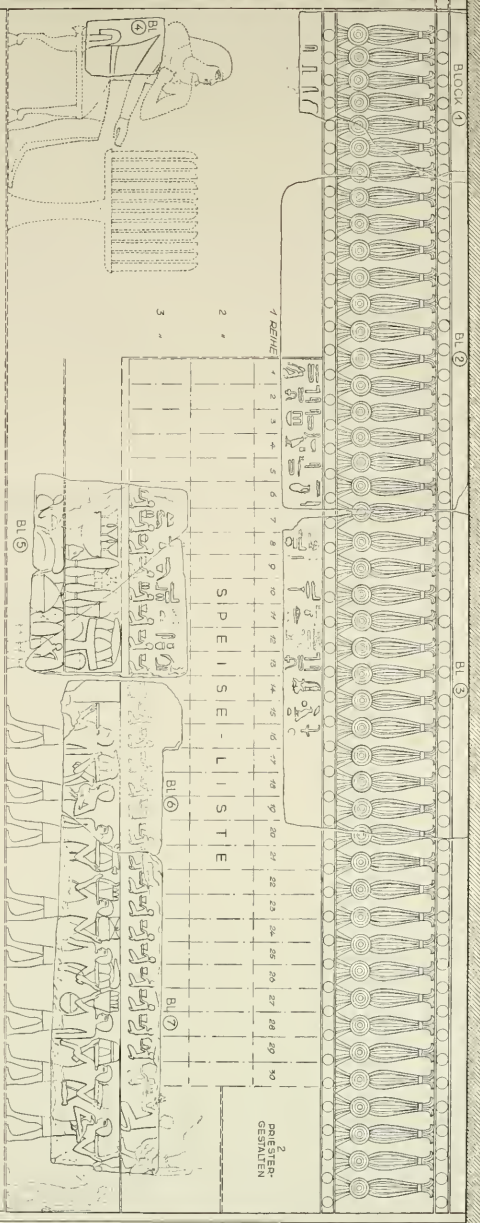 BLOCK ①
BL ②
BL ③
BL ④
1 REIHE
2 "
3 "
1 2 3 4 5 6 7 8 9 10 11 12 13 14 15 16 17 18 19 20 21 22 23 24 25 26 27 28 29 30
SPEISE-LISTE
2
PRIESTER-
GESTALTEN
BL ⑤
BL ⑥
BL ⑦